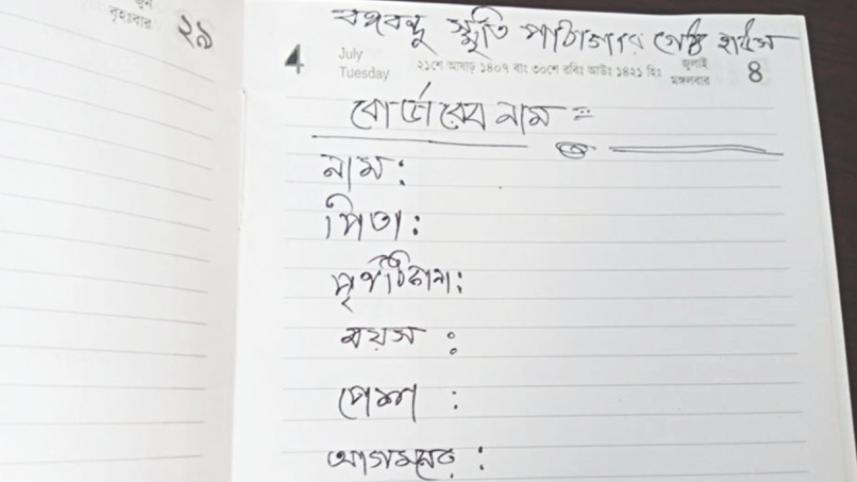 জুন
বৃহঃবার ২৯
বঙ্গবন্ধু স্মৃতি পাঠাগার গেষ্ট হাউস
4 July
Tuesday
২১শে আষাঢ় ১৪০৭ বাং ৩০শে রবিঃ আউঃ ১৪২১ হিঃ
জুলাই
মঙ্গলবার 8
বোর্ডারের নাম =
নাম :
পিতা :
পূর্ণঠিকানা :
বয়স :
পেশা :
আগমনের :